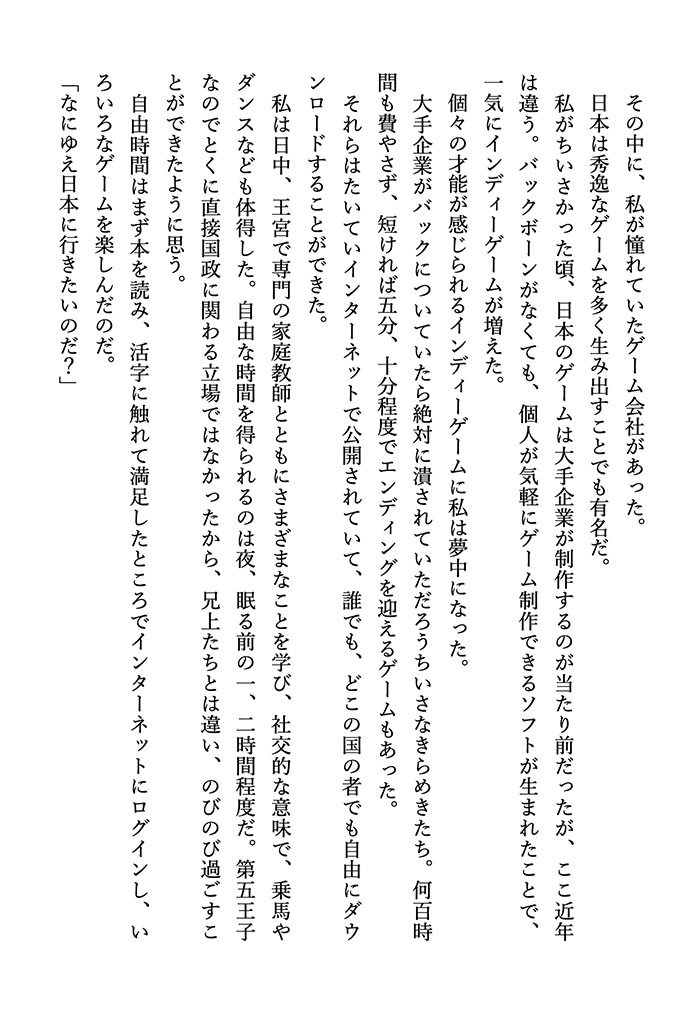 その中に、私が憧れていたゲーム会社があった。
日本は秀逸なゲームを多く生み出すことでも有名だ。
私がちいさかった頃、日本のゲームは大手企業が制作するのが当たり前だったが、ここ近年
は違う。バックボーンがなくても、個人が気軽にゲーム制作できるソフトが生まれたことで、
一気にインディーゲームが増えた。
個々の才能が感じられるインディーゲームに私は夢中になった。
大手企業がバックについていたら絶対に潰されていただろうちいさなきらめきたち。何百時
間も費やさず、短ければ五分、十分程度でエンディングを迎えるゲームもあった。
それらはたいていインターネットで公開されていて、誰でも、どこの国の者でも自由にダウ
ンロードすることができた。
私は日中、王宮で専門の家庭教師とともにさまざまなことを学び、社交的な意味で、乗馬や
ダンスなども体得した。自由な時間を得られるのは夜、眠る前の一、二時間程度だ。第五王子
なのでとくに直接国政に関わる立場ではなかったから、兄上たちとは違い、のびのび過ごすこ
とができたように思う。
自由時間はまず本を読み、活字に触れて満足したところでインターネットにログインし、い
ろいろなゲームを楽しんだのだ。
「なにゆえ日本に行きたいのだ？」